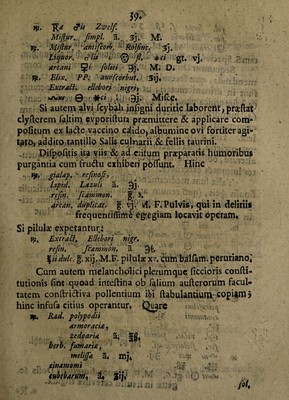 39.
Mistur. simpl. ā. ʒj. M.
Mistur. antiscorb. Rolfinc. ʒj.
Liquor. ♂lis
arcani solati ʒj. M. D.
℞. Elix. PP. auroscorbut. ʒij.
Extract. ellebori nigri,
ā. ʒj. Misce.
Si autem alvi scybala insigni duritie laborent, præstat
clysterem saltim evporistum præmittere & applicare com-
positum ex lacte vaccino calido, albumine ovi fortiter agi-
tato, addito tantillo Salis culinarii & fellis taurini.
Dispositis ita viis & ad exitum præparatis humoribus
purgantia cum fructu exhiberi possunt. Hinc
℞. gialap. resinosæ,
lapid. Lazuli ā. ℈j
resin. scammon. g. v.
arcan. duplicat. g. vj. M. F. Pulvis, qui in deliriis
frequentissime egregiam locavit operam.
Si pilulæ expetantur:
℞. Extract. Ellebori nigr.
resin. scammon. ā. ℈ß.
g. xij. M.F. pilulæ xv. cum balsam. peruviano,
Cum autem melancholici plerumque siccioris consti-
tutionis sint quoad intestina ob salium austerorum facul-
tatem constrictiva pollentium ibi stabulantium copiam;
hinc infusa citius operantur. Quare
℞. Rad. polypodii
armoraciæ,
zedoariæ ā. ʒß.
herb. fumariæ,
melissæ ā. mj.
cinamomi
cubebarum, ā. ʒij.
sol.